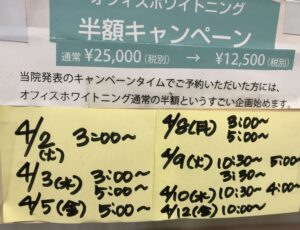 オフィスホワイトニング
半額キャンペーン
通常 ¥25,000(税別) → ¥12,500(税別)
当院発表のキャンペーンタイムでご予約いただいた方には、
オフィスホワイトニング通常の半額というすごい企画始めます。
4/2(土) 3:00～
4/3(水) 3:00～
5:00～
4/5(金) 5:00～
4/8(月) 3:00～
5:00～
4/9(火) 10:30～ 5:00～
3:30～
4/10(水) 10:30～ 4:00～
4/12(金) 10:00～